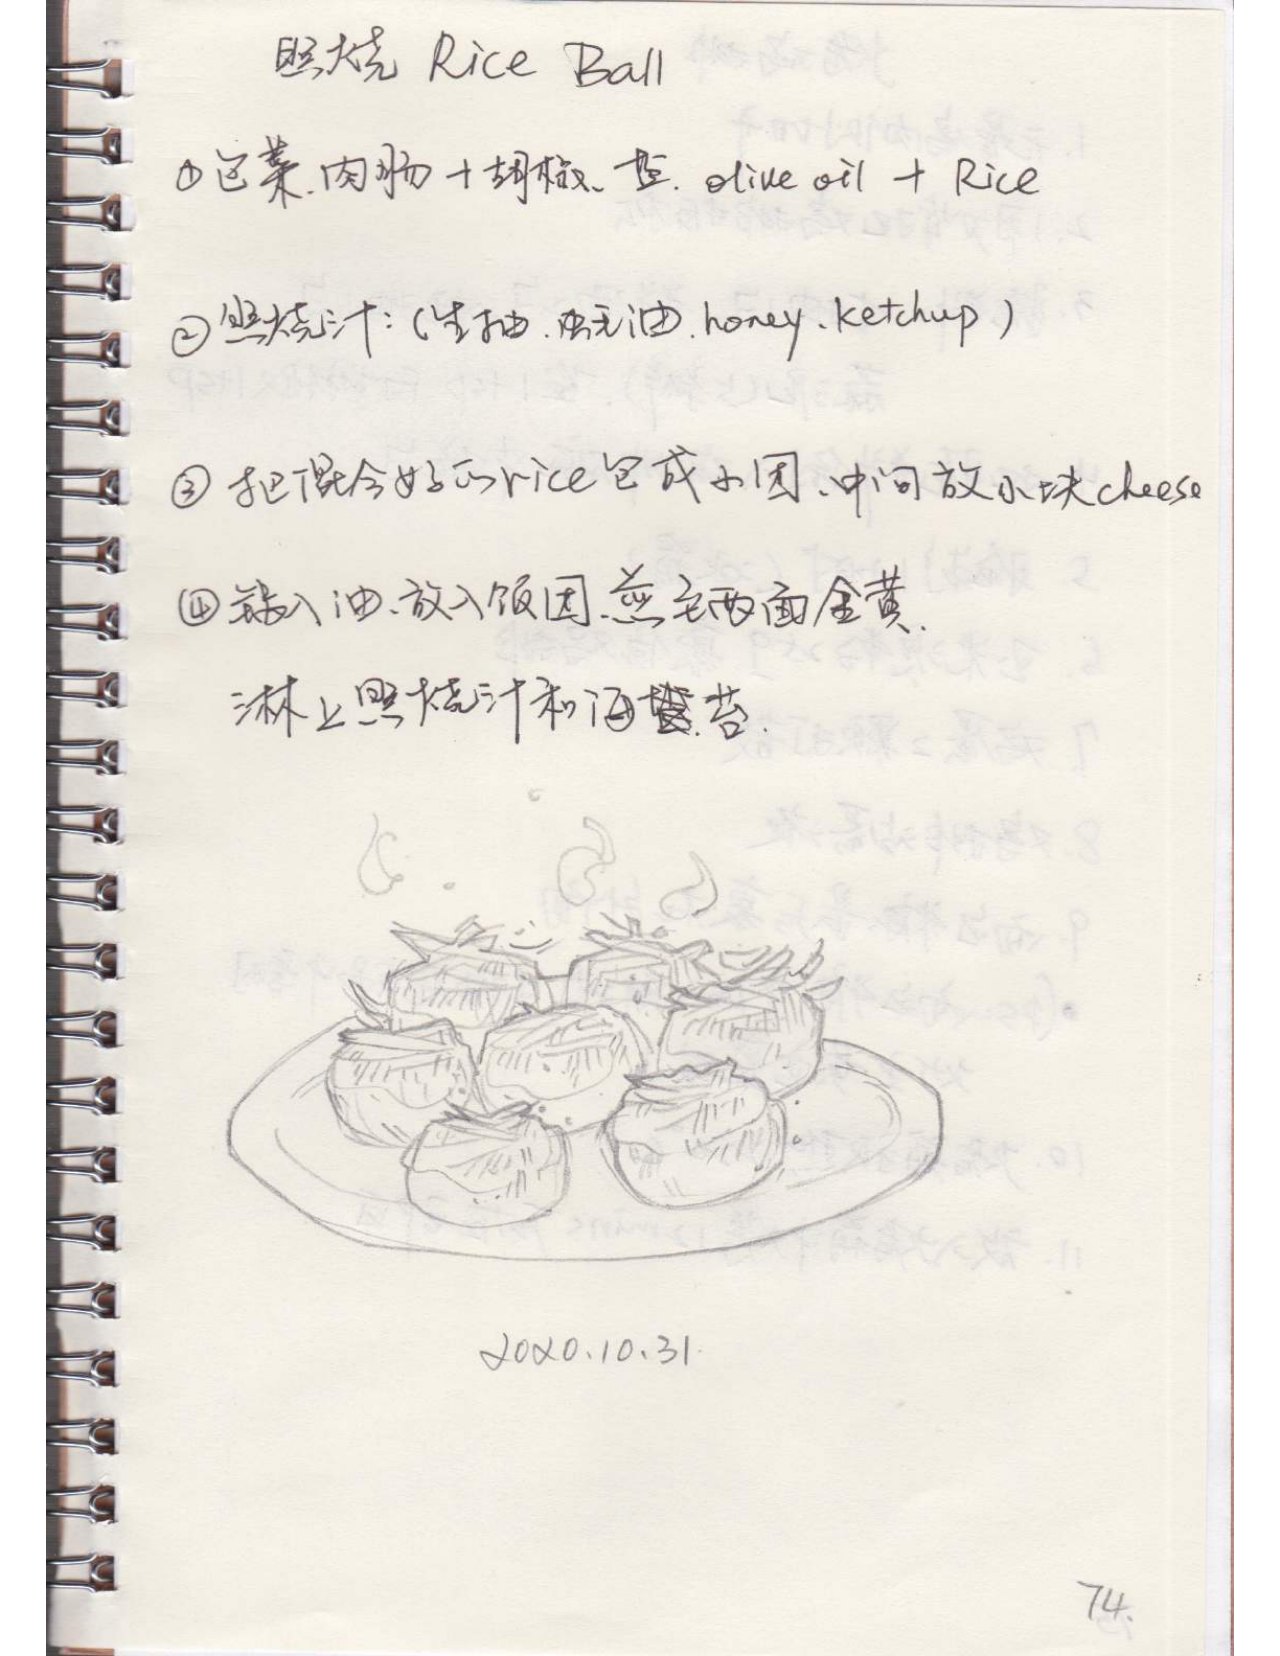 照烧 Rice Ball
①包菜、肉肠+胡椒、盐、olive oil + Rice
②照烧汁:(生抽、蚝油、honey、ketchup)
③把混合好的rice包成小团、中间放小块cheese
④锅入油、放入饭团、煎至两面金黄.
淋上照烧汁和海苔.
2020.10.31.
74.